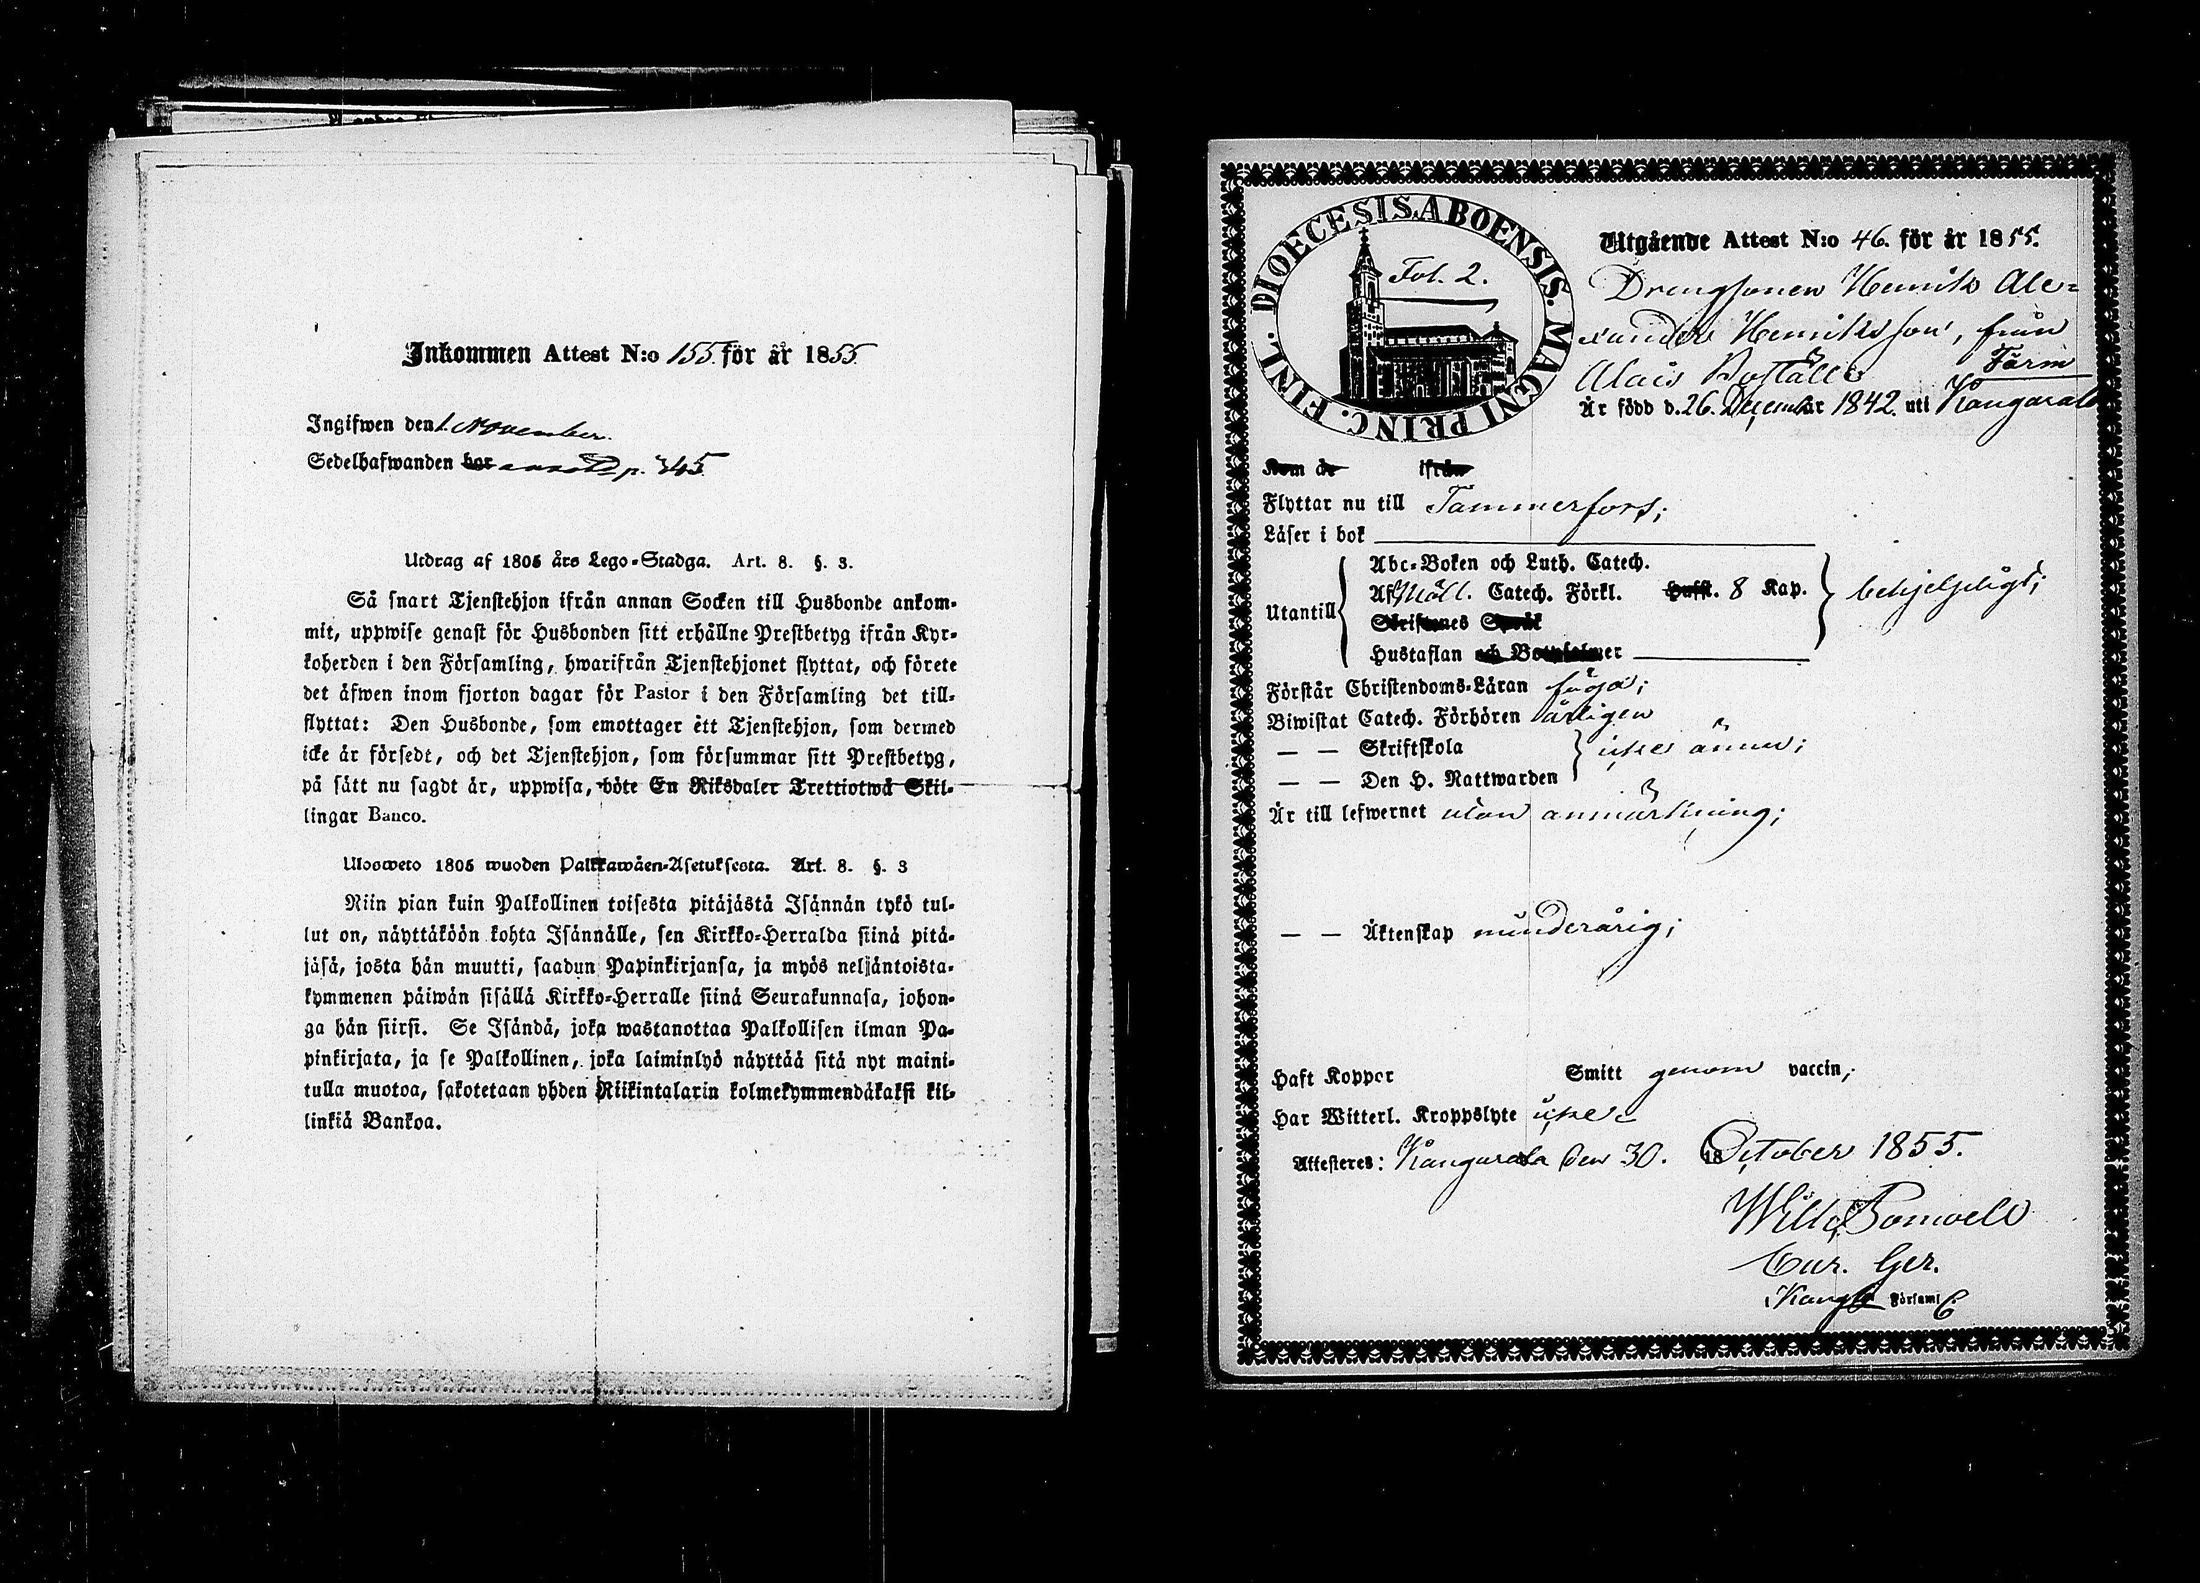 Inkommen Attest N:o 155. för år 1855
Ingifwen den 1. November.
Sedelhafwanden bor p. 345
Utdrag af 1805 års Lego-Stadga. Art. 8. §. 3.
Så snart Tjenstehjon ifrån annan Socken till Husbonde ankom-
mit, uppwise genast för Husbonden sitt erhållne Prestbetyg ifrån Kyr-
koherden i den Församling, hwarifrån Tjenstehjonet flyttat, och förete
det äfwen inom fjorton dagar för Pastor i den Församling det till-
flyttat: Den Husbonde, som emottager ett Tjenstehjon, som dermed
icke är försedt, och det Tjenstehjon, som försummar sitt Prestbetyg,
på sätt nu sagdt är, uppwisa, böte En Riksdaler Trettiotwå Skil-
lingar Banco.
Ulosweto 1805 wuoden Palkkawäen-Asetuksesta. Art. 8. §. 3
Niin pian kuin Palkollinen toisesta pitäjästä Isännän tykö tul-
lut on, näyttäköön kohta Isännälle, sen Kirkko-Herralda siinä pitä-
jäsä, josta hän muutti, saadun Papinkirjansa, ja myös neljäntoista-
kymmenen päiwän sisällä Kirkko-Herralle siinä Seurakunnasa, johon-
ga hän siirsi. Se Isändä, joka wastanottaa Palkollisen ilman Pa-
pinkirjata, ja se Palkollinen, joka laiminlyö näyttää sitä nyt maini-
tulla muotoa, sakotetaan yhden Riikintalarin kolmekymmendäkaksi kil-
linkiä Bankoa.
DIOECESIS. ABOENSIS. MAGNI PRINC. FINL.
Fol. 2.
Utgående Attest N:o 46. för år 1855.
Drengsonen Henrik Ale=
xander Henriksson, från
Alais Boställe
Är född d. 26. December 1842. uti Kangasala
Kom år ifrån
Flyttar nu till Tammerfors;
Läser i bok
Utantill
Abc-Boken och Luth. Catech.
Af Möll. Catech. Förkl. Hufst. 8 Kap. behjelpligt;
Skriftenes Språk
Hustaflan och Botpsalmer
Förstår Christendoms-Läran föga;
Biwistat Catech. Förhören årligen
— — Skriftskola
icke ännu;
— — Den H. Nattwarden
Är till lefwernet utan anmärkning;
— — Äktenskap minderårig;
Haft Koppor Smitt genom vaccin;
Har Witterl. Kroppslyte icke.
Attesteres: Kangasala den 30. October 1855.
Cur. Ger.
i Kang Församl